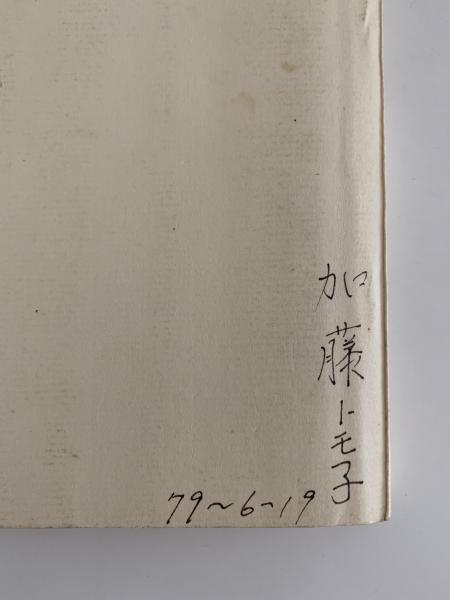 加藤トモ子
79~6-19